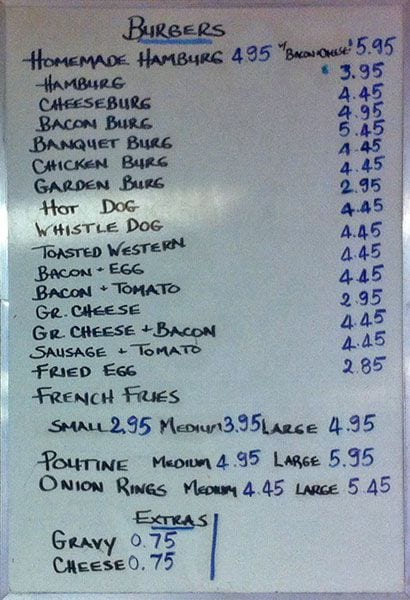 BURGERS
HOMEMADE HAMBURG 4.95 "W/ BACON+CHEESE" 5.95
HAMBURG 3.95
CHEESEBURG 4.45
BACON BURG 4.95
BANQUET BURG 5.45
CHICKEN BURG 4.45
GARDEN BURG 4.45
HOT DOG 2.95
WHISTLE DOG 4.45
TOASTED WESTERN 4.45
BACON + EGG 4.45
BACON + TOMATO 4.45
GR. CHEESE 2.95
GR. CHEESE + BACON 4.45
SAUSAGE + TOMATO 4.45
FRIED EGG 2.85
FRENCH FRIES
SMALL 2.95 MEDIUM 3.95 LARGE 4.95
POUTINE MEDIUM 4.95 LARGE 5.95
ONION RINGS MEDIUM 4.45 LARGE 5.45
EXTRAS
GRAVY 0.75
CHEESE 0.75